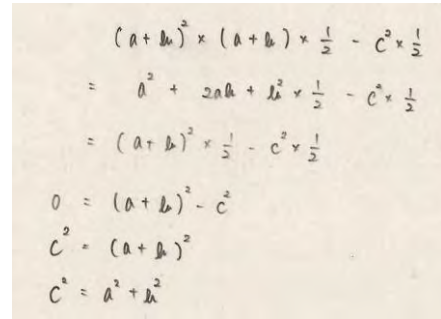 (a + b)² × (a + b) × 1/2 - c² × 1/2
= a² + 2ab + b² × 1/2 - c² × 1/2
= (a + b)² × 1/2 - c² × 1/2
0 = (a + b)² - c²
c² = (a + b)²
c² = a² + b²